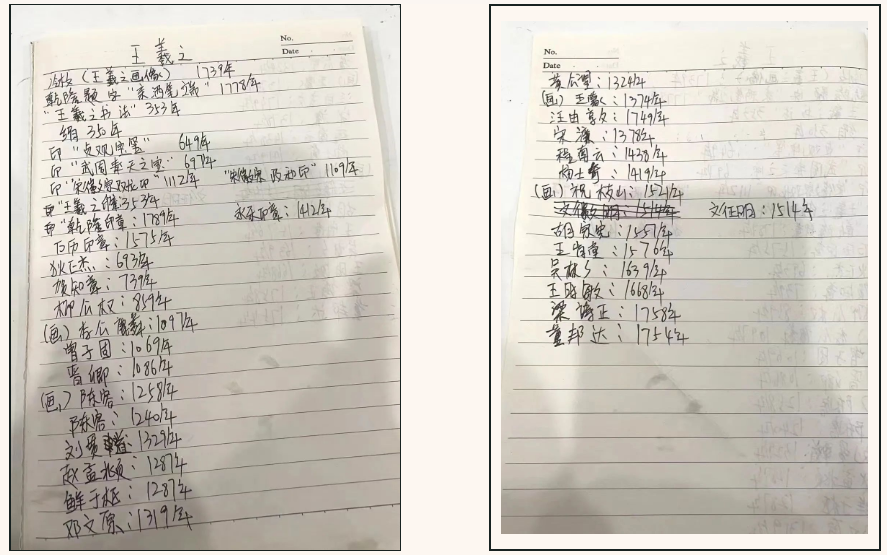 王羲之
No.
Date
冷枚(王羲之画像) 1739年
乾隆题 1778年
"王羲之书法" 353年
绢 35年
印 649年
印 "武周奉天之宝" 697年
印 1112年 1109年
印 "王羲之 353年
印 "乾隆印章:1789年 永乐印章:1412年
印章:1575年
狄仁杰:693年
贺知章:739年
柳公权:859年
(画)李公麟:1097年
曾子固:1069年
晋卿:1086年
(画)陈容:1258年
陈容:1240年
刘贯道:1329年
赵孟頫:1287年
鲜于枢:1287年
邓文原:1319年
No.
Date
黄公望:1324年
(画)王蒙:1374年
汪由敦:1749年
宋濂:1378年
程南云:1438年
杨士奇:1419年
(画)祝枝山:1521年
文征明:1514年
胡宗宪:1557年
王肯堂:1576年
吴林:1639年
王时敏:1668年
梁诗正:1758年
董邦达:1754年